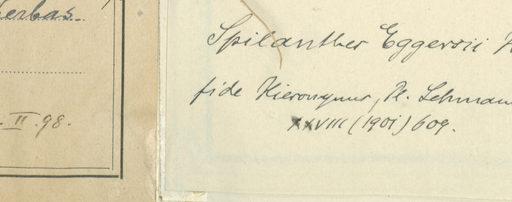 erbas.
Spilanthes Eggersii H
fide Hieronymus, Pl. Lehmann
XXVIII (1901) 609.
. II. 98.